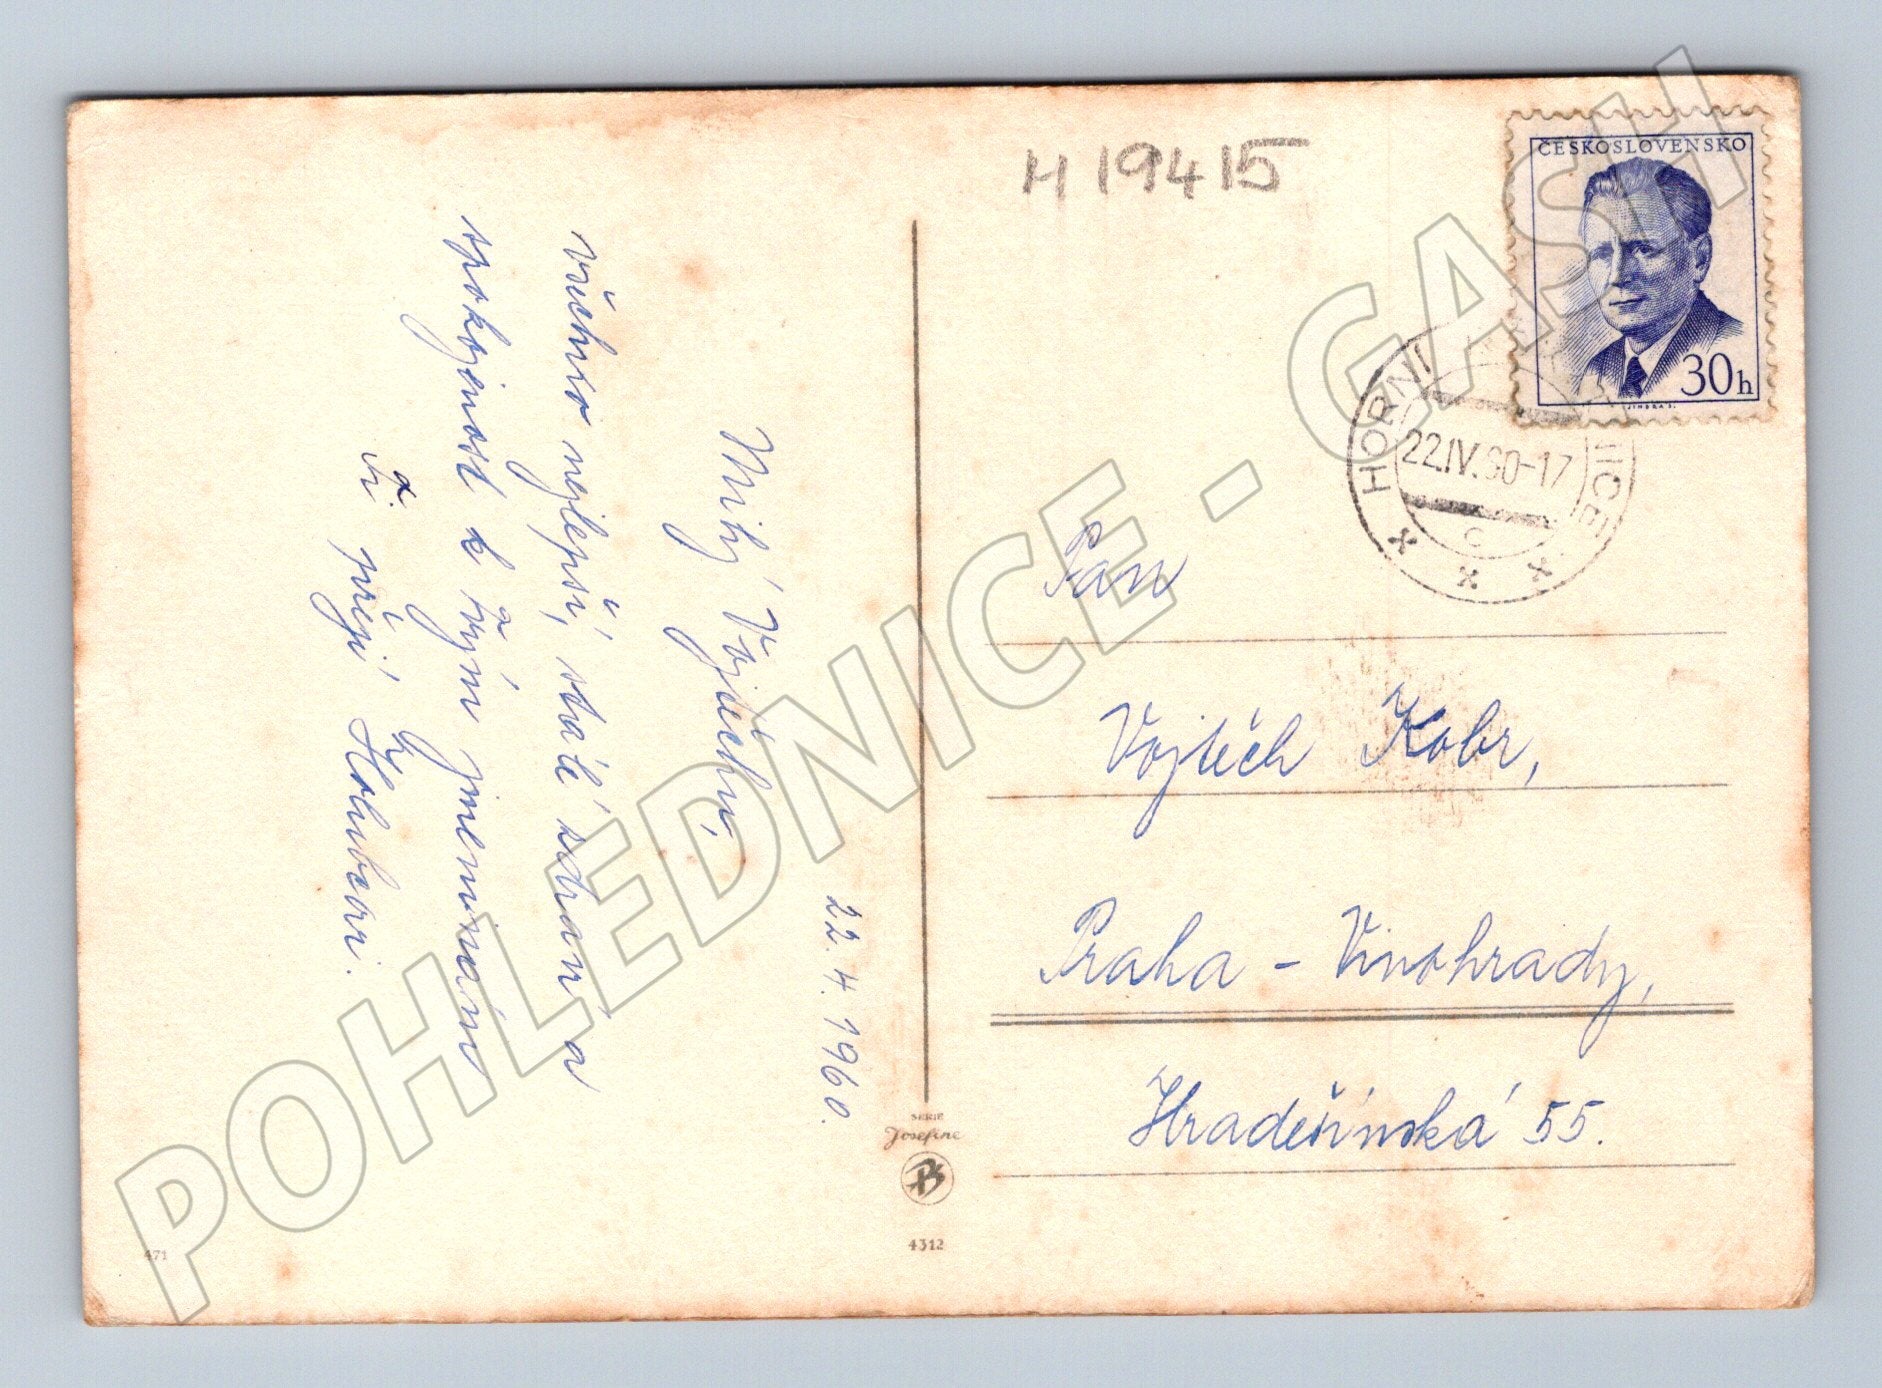 H 19415
ČESKOSLOVENSKO
30h
JINDRA S.
HORNÍ
22.IV.60-17
c
22. 4. 1960.
Milý Vojtěchu,
všechno nejlepší, stálé zdraví a
spokojenost k Tvým jmeninám
Ti přejí Holubcovi.
Pan
Vojtěch Kobr,
Praha - Vinohrady,
Hradešínská 55.
SERIE
Josefine
4312
471
POHLEDNICE - GASH